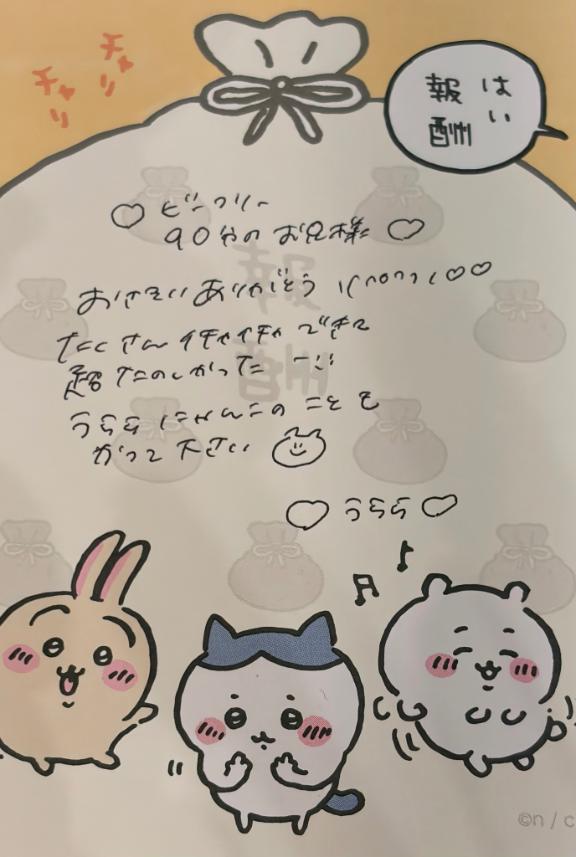 チャリ
チャリ
はい
報酬
♡ ビーフリー
90分のお兄様 ♡
おさそいありがとう
たくさんイチャイチャできて
超たのしかったー
うららにゃんこのことも
かって下さい
♡ うらら ♡
報酬
©n / c